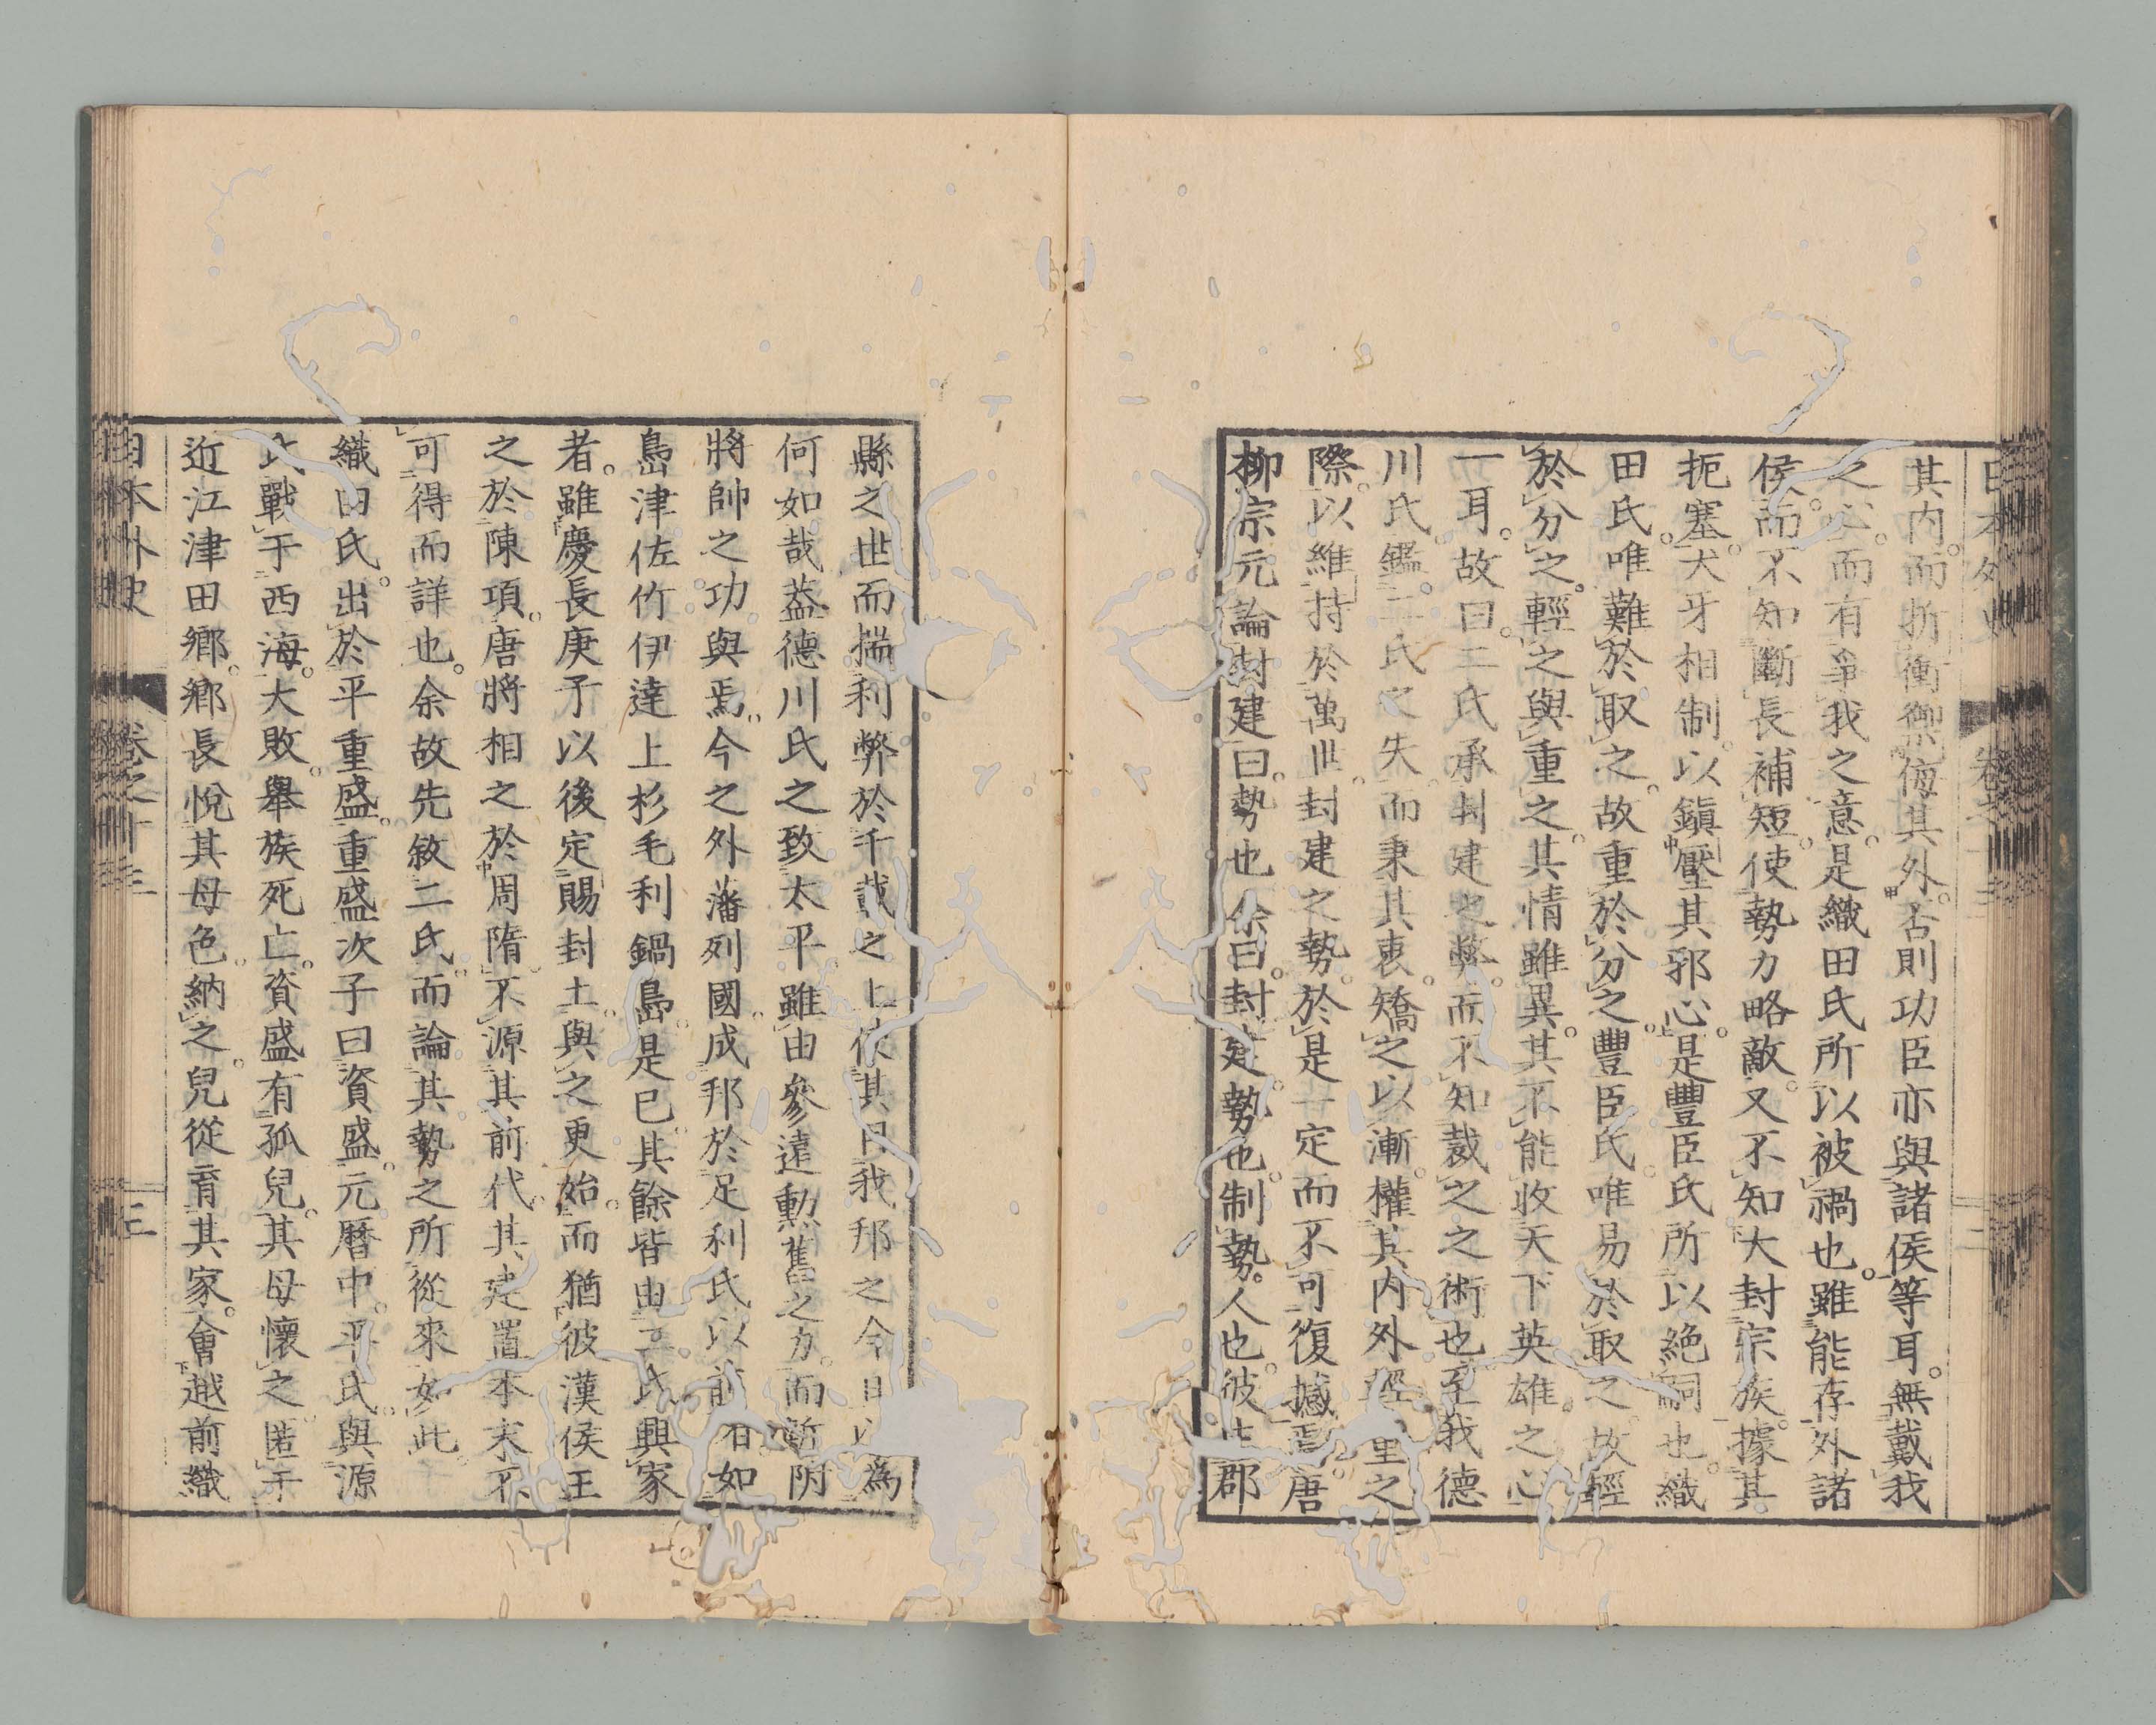 日本外史 卷之十三 二
其內。而折衝禦侮其外。否則功臣亦與諸侯等耳。無戴我
之心。而有爭我之意。是織田氏所以被禍也。雖能存外諸
侯。而不知斷長補短。使勢力略敵。又不知大封宗族。據其
扼塞。犬牙相制。以鎭壓其邪心。是豐臣氏所以絶嗣也。織
田氏。唯難於取之。故重於分之。豐臣氏。唯易於取之。故輕
於分之。輕之與重之。其情雖異。其不能收天下英雄之心
一耳。故曰。二氏承封建之弊。而不知裁之之術也。至我德
川氏。鑑二氏之失。而秉其衷。矯之以漸。權其內外輕重之
際。以維持於萬世。封建之勢。於是一定而不可復撼焉。唐
柳宗元論封建曰。勢也。余曰。封建。勢也。制勢。人也。彼生郡
縣之世。而揣利弊於千載之上。使其目我邦之今日。以爲
何如哉。蓋德川氏之致太平。雖由參遠勳舊之力。而暫附
將帥之功。與焉。今之外藩列國。成邦於足利氏以前有如
島津佐竹伊達上杉毛利鍋島是已。其餘皆由二氏興家
者。雖慶長庚子以後定賜封土。與之更始。而猶彼漢侯王
之於陳項。唐將相之於周隋。不源其前代。其建置本末不
可得而詳也。余故先敘二氏。而論其勢之所從來如此。
織田氏。出於平重盛。重盛次子曰資盛。元曆中。平氏與源
氏戰于西海。大敗。舉族死亡。資盛有孤兒。其母懷之。匿于
近江津田鄉。鄉長悅其母色。納之。兒從育其家。會越前織
日本外史 卷之十三 三